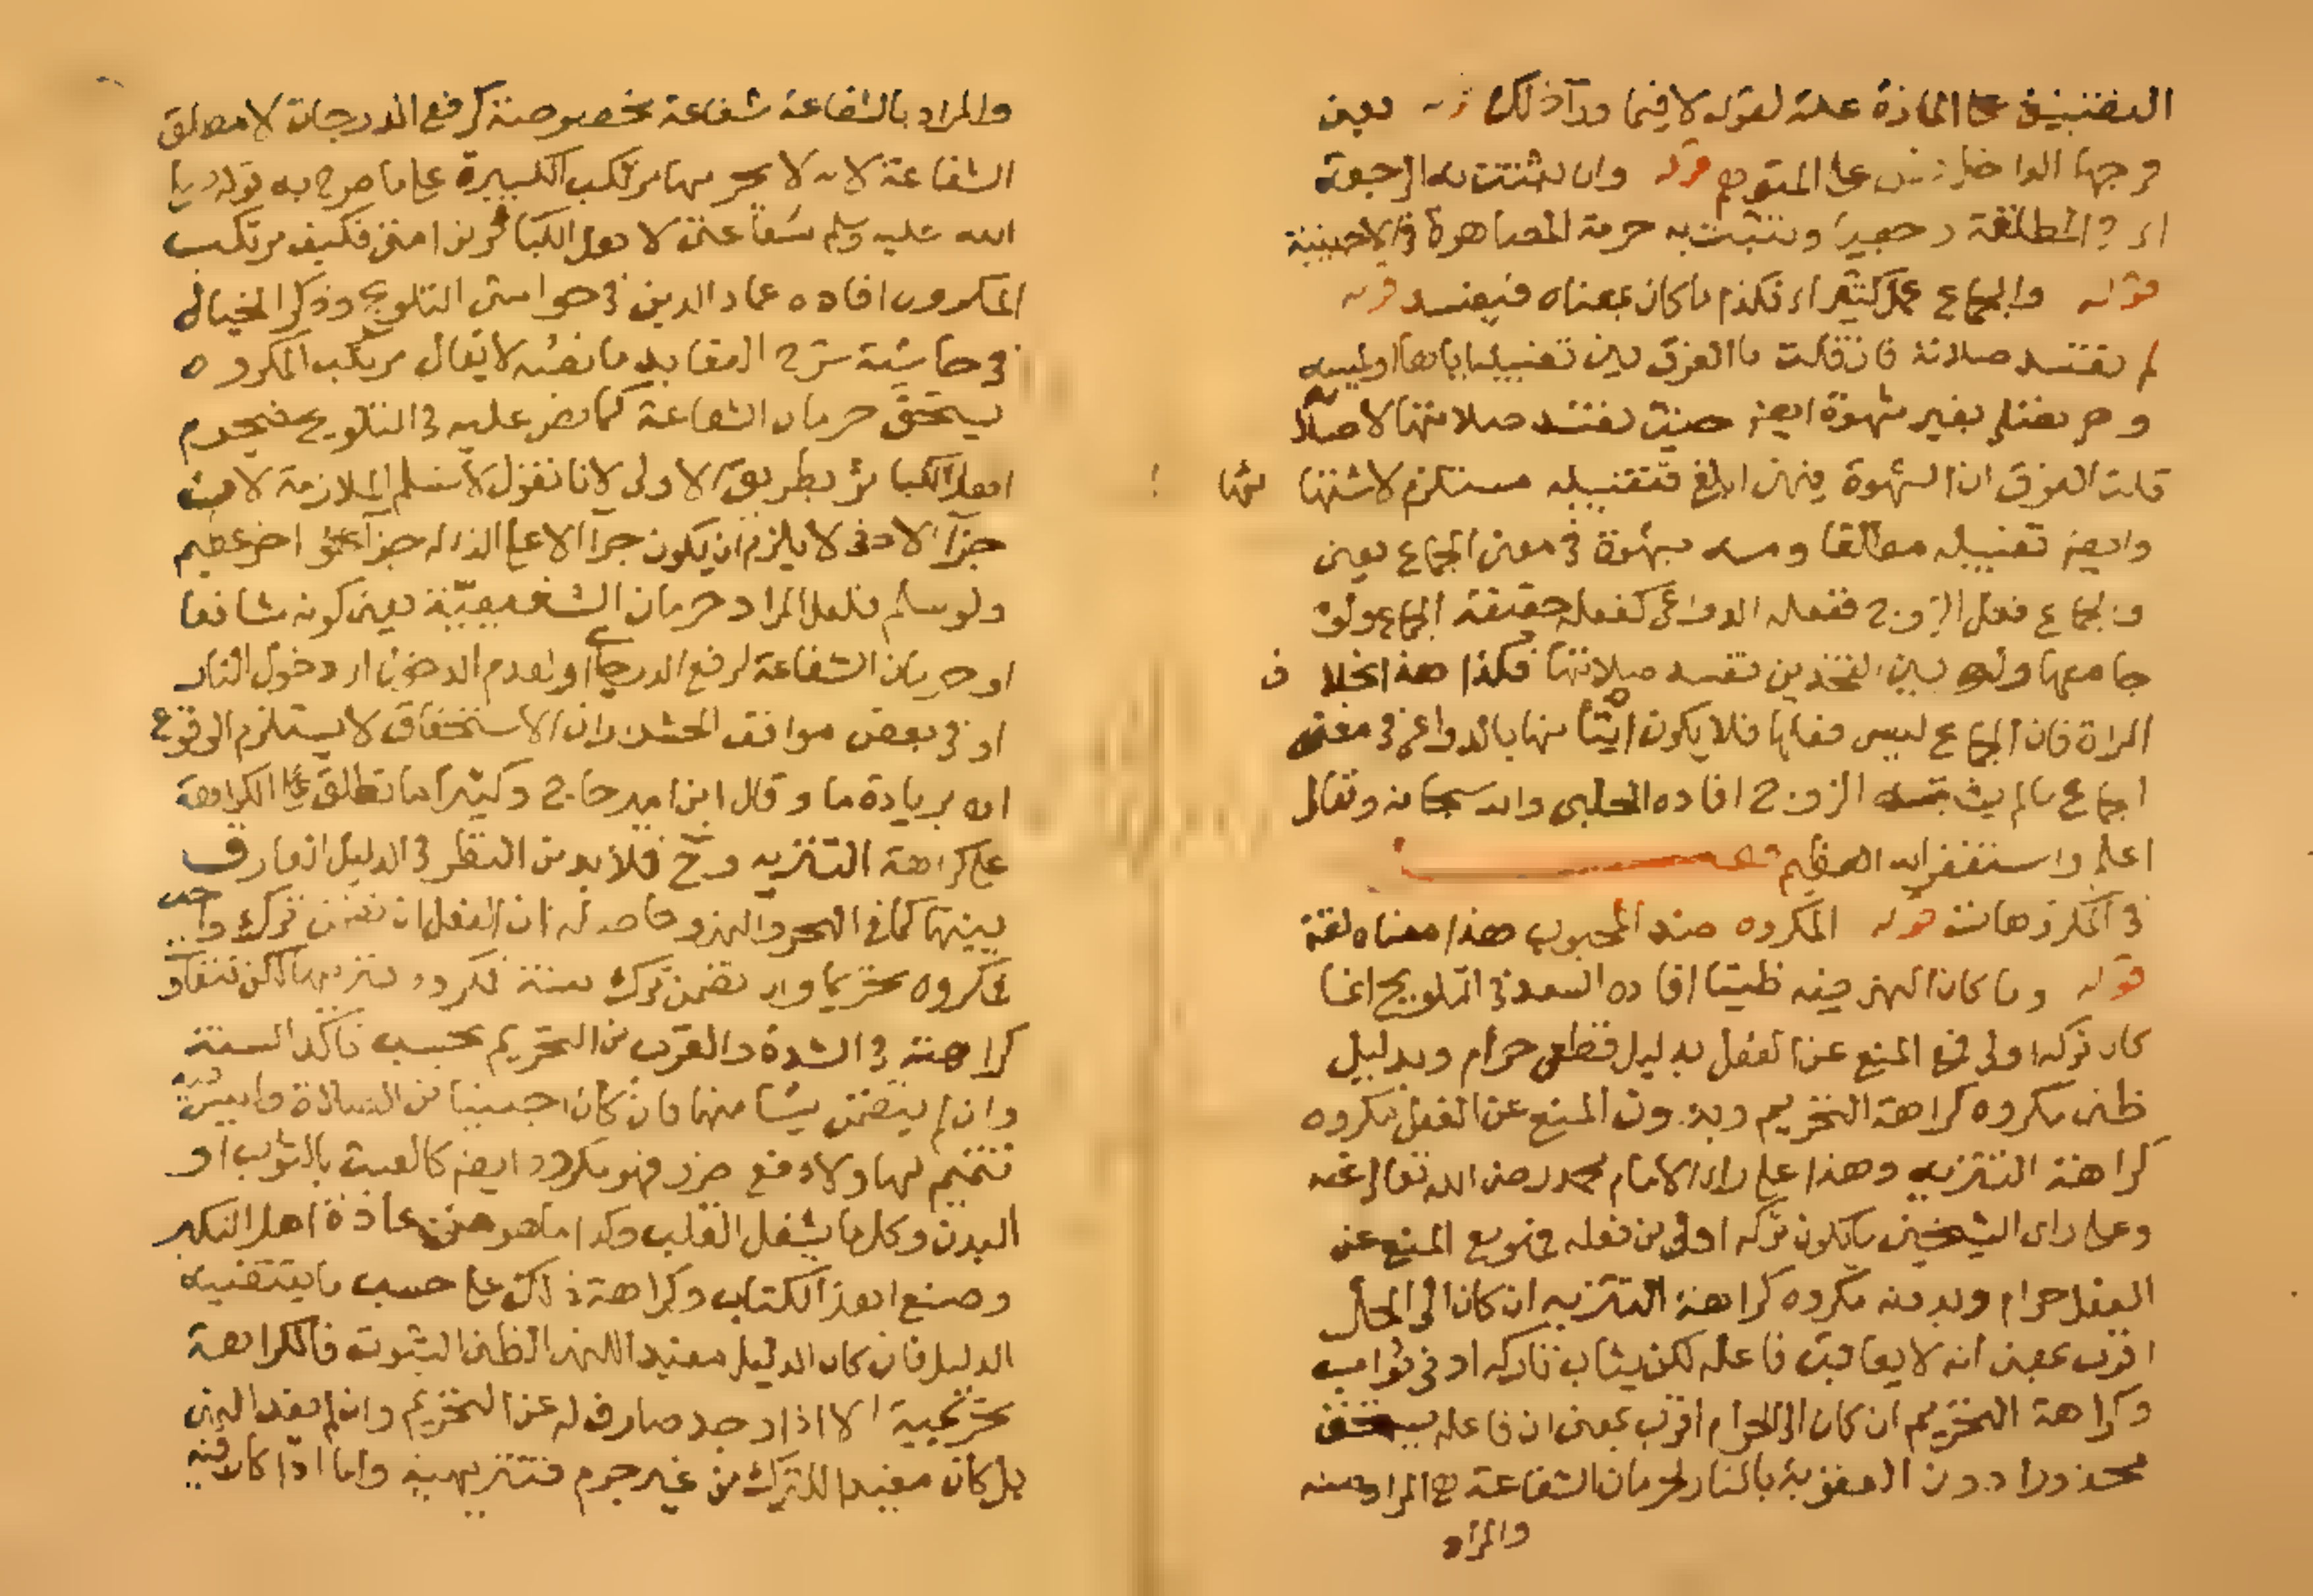 التضييق على المارة علة لقوله لا فيما ورآ ذلك قوله يعني
فرجها الداخل على المتوضي قوله وان يثبت به الرجعة
اي في المطلقة رجعيا وتثبت به حرمة المصاهرة في الاجنبية
قوله والجماع عمل كثير اي فكذا ما كان بمعناه فيفسد قوله
لم تفسد صلاته فان قلت ما الفرق بين تقبيلها اياها او لمسه
وهو يصلي بغير شهوة ايضا حيث تفسد صلاتها لا صلاته
قلت الفرق ان الشهوة فيهن ابلغ فتقبيله مستلزم لاشتهائها
وايضا تقبيله مطلقا ومسه بشهوة في معنى الجماع يعني
والجماع فعل الزوج ففعله الدواعي كفعله حقيقة الجماع ولو
جامعها ولو بين الفخذين تفسد صلاتها فكذا هذا بخلاف
المراة فان الجماع ليس فعلها فلا يكون اتيانها بالدواعي في معنى
الجماع ما لم يشته الزوج افاده الحلبي والله سبحانه وتعالى
اعلم واستغفر الله العظيم فصل
في المكروهات قوله المكروه ضد المحبوب هذا معناه لغة
قوله وما كان النهي فيه ظنيا افاده السعد في التلويح انما
كان تركه اولى فمع المنع عن الفعل بدليل قطعي حرام وبدليل
ظني مكروه كراهة التحريم وبدون المنع عن الفعل مكروه
كراهة التنزيه وهذا على راي الامام محمد رضي الله تعالى عنه
وعلى راى الشيخين ما يكون تركه اولى من فعله فهو مع المنع عن
الفعل حرام وبدونه مكروه كراهة التنزيه ان كان الى الحل
اقرب بمعنى انه لا يعاقب فاعله لكن يثاب تاركه ادنى ثواب
وكراهة التحريم ان كان الى الحرام اقرب بمعنى ان فاعله يستحق
محذورا دون العقوبة بالنار لحرمان الشفاعة
والمراد
والمراد بالشفاعة شفاعة مخصوصة كرفع الدرجات لا مطلق
الشفاعة لانه لا يحرمها مرتكب الكبيرة على ما صرح به قوله صلى
الله عليه وسلم شفاعتي لاهل الكبائر من امتي فكيف مرتكب
المكروه افاده عماد الدين في حواشي التلويح وذكر الخيالي
في حاشية شرح العقايد ما نصه لا يقال مرتكب المكروه
يستحق حرمان الشفاعة كما نص عليه في التلويح فيحرم
اهل الكبائر بطريق الاولى لانا نقول لا نسلم الملازمة لان
جزآ الادنى لا يلزم ان يكون جزآ الاعلى الذي له جزآ اخر عظيم
ولو سلم فلعل المراد حرمان الشفيعية يعني كونه شافعا
او حرمان الشفاعة لرفع الدرجات او لعدم الدخول اي دخول النار
او في بعض مواقف الحشر وان الاستحقاق لا يستلزم الوقوع
اه بزيادة ما وقال ابن امير حاج وكثيرا ما تطلق الكراهة
على كراهة التنزيه وح فلا بد من النظر في الدليل الفارق
بينهما كما في البحر والنهر وحاصله ان الفعل ان تضمن ترك واجب
فمكروه تحريما وان تضمن ترك سنة فمكروه تنزيها لكن تتفاوت
كراهته في الشدة والقرب من التحريم بحسب تاكد السنة
وان لم يتضمن شيئا منهما فان كان اجنبيا من الصلاة وليس فيه
تتميم لها ولا دفع ضرر فهو مكروه ايضا كالعبث بالثوب او
البدن وكل ما يشغل القلب وكذا ما هو من عادة اهل التكبر
وصنع اهل الكتاب وكراهة ذلك على حسب ما يقتضيه
الدليل فان كان الدليل مفيدا للنهي الظني الثبوت فالكراهة
تحريمية الا اذا وجد صارف له عن التحريم وان لم يفد النهي
بل كان مفيدا للترك من غير جزم فتنزيهية واما اذا كان فيه